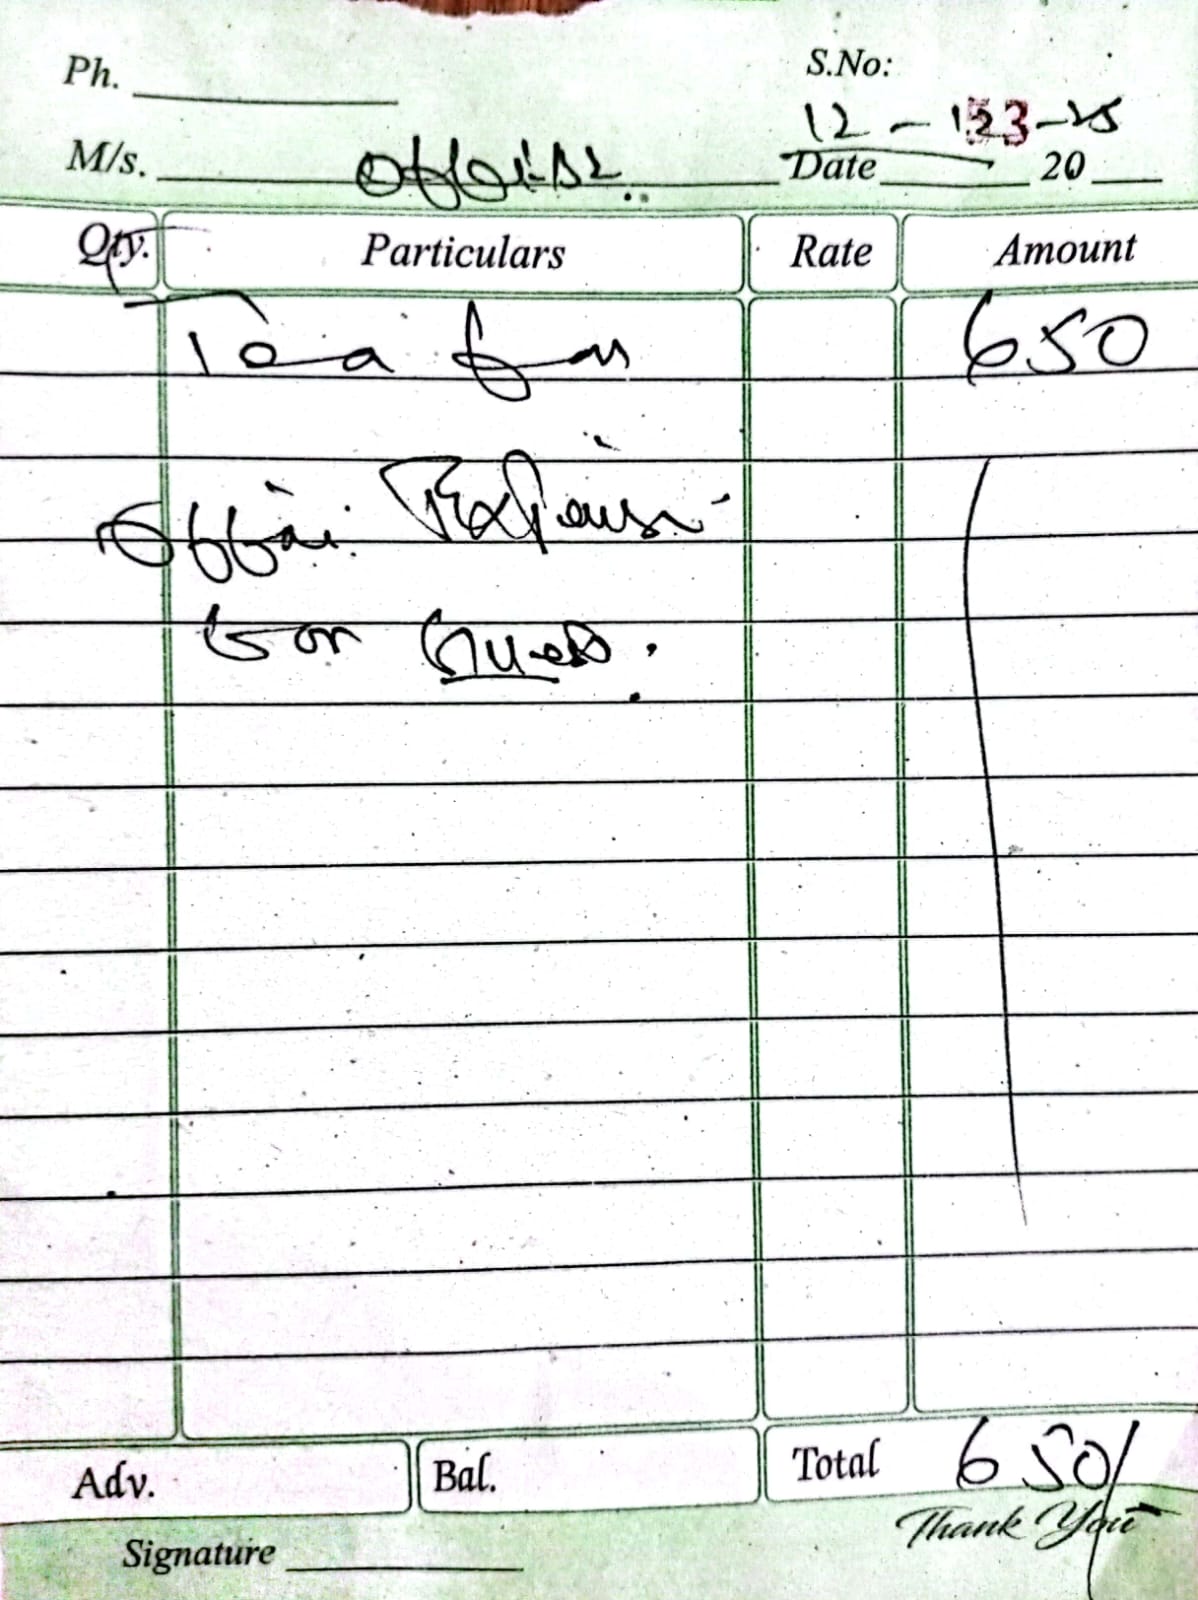 Ph.
S.No:
M/s. Office
12 - -25
Date 20
Qty. Particulars Rate Amount
Tea for 650
Office Expense
for Guest.
Adv. Bal. Total 650/
Thank You
Signature